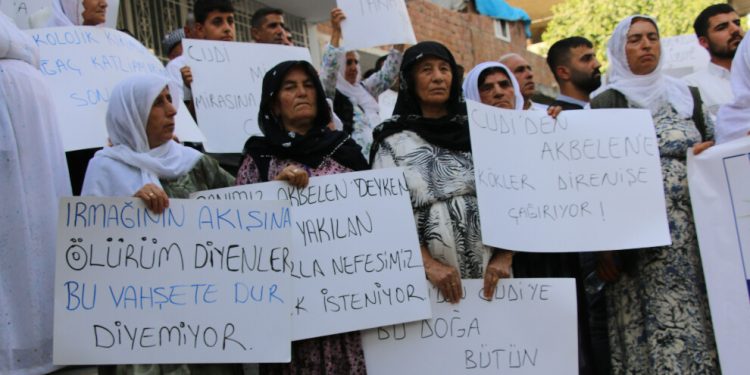 TARAF
KOLOJİK KIR
AĞAÇ KATLİAM
SON
CUDİ
Mİ
MİRASINA
IRMAĞININ AKIŞINA
ÖLÜRÜM DİYENLER
BU VAHŞETE DUR
DİYEMİYOR.
ANIMIZ AKBELEN DEYKEN
YAKILAN
LLA NEFESİMİZ
K İSTENİYOR
CUDİ'DEN
AKBELEN'E
KÖKLER DİRENİŞE
ÇAĞIRIYOR !
DEN CUDİ'YE
BU DOĞA
BÜTÜN